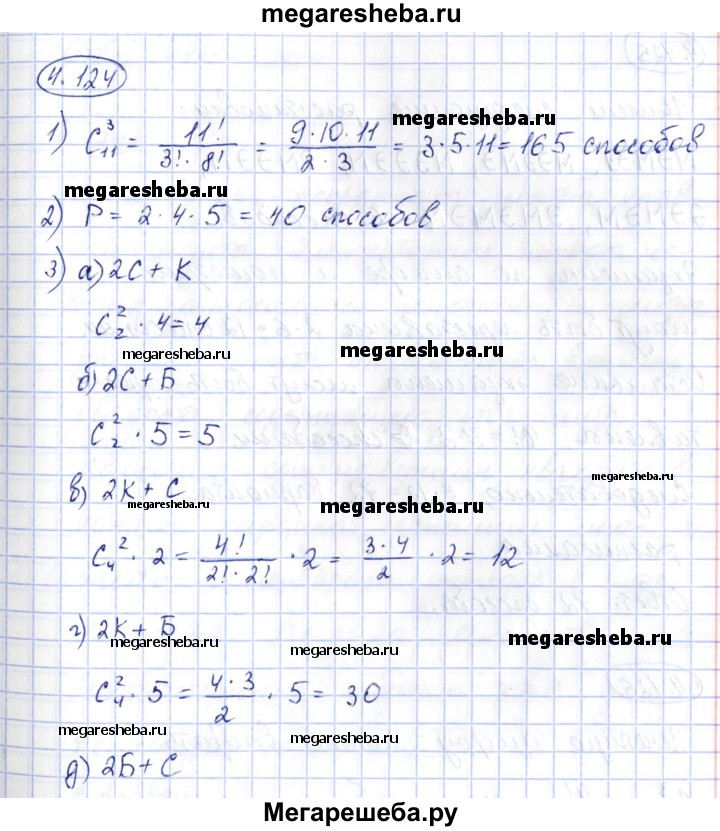 megaresheba.ru
4.124
1) C₁₁³ = 11!/(3!·8!) = (9·10·11)/(2·3) = 3·5·11 = 165 способов
megaresheba.ru
megaresheba.ru
2) P = 2·4·5 = 40 способов
3) а) 2С + К
C₂²·4 = 4
megaresheba.ru
megaresheba.ru
б) 2С + Б
C₂²·5 = 5
megaresheba.ru
в) 2К + С
megaresheba.ru
megaresheba.ru
C₄²·2 = 4!/(2!·2!)·2 = (3·4)/2·2 = 12
г) 2К + Б
megaresheba.ru
megaresheba.ru
megaresheba.ru
C₄²·5 = (4·3)/2·5 = 30
megaresheba.ru
megaresheba.ru
д) 2Б + С
Мегарешеба.ру